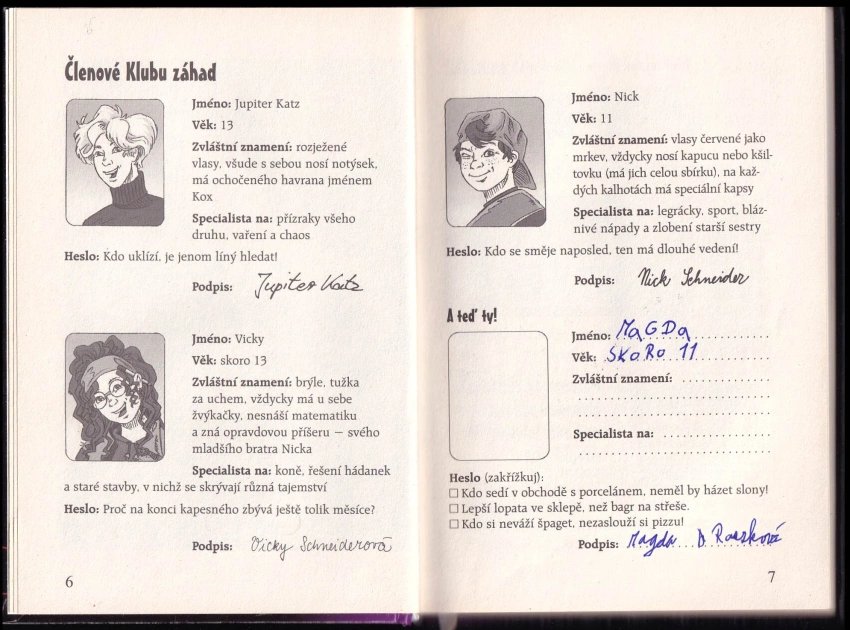 Členové Klubu záhad
Jméno: Jupiter Katz
Věk: 13
Zvláštní znamení: rozježené
vlasy, všude s sebou nosí notýsek,
má ochočeného havrana jménem
Kox
Specialista na: přízraky všeho
druhu, vaření a chaos
Heslo: Kdo uklízí, je jenom líný hledat!
Podpis: Jupiter Katz
Jméno: Vicky
Věk: skoro 13
Zvláštní znamení: brýle, tužka
za uchem, vždycky má u sebe
žvýkačky, nesnáší matematiku
a zná opravdovou příšeru – svého
mladšího bratra Nicka
Specialista na: koně, řešení hádanek
a staré stavby, v nichž se skrývají různá tajemství
Heslo: Proč na konci kapesného zbývá ještě tolik měsíce?
Podpis: Vicky Schneiderová
6
Jméno: Nick
Věk: 11
Zvláštní znamení: vlasy červené jako
mrkev, vždycky nosí kapucu nebo kšil-
tovku (má jich celou sbírku), na kaž-
dých kalhotách má speciální kapsy
Specialista na: legrácky, sport, bláz-
nivé nápady a zlobení starší sestry
Heslo: Kdo se směje naposled, ten má dlouhé vedení!
Podpis: Nick Schneider
A teď ty!
Jméno: MaGDa
Věk: SKoRo 11
Zvláštní znamení:
Specialista na:
Heslo (zakřížkuj):
Kdo sedí v obchodě s porcelánem, neměl by házet slony!
Lepší lopata ve sklepě, než bagr na střeše.
Kdo si neváží špaget, nezaslouží si pizzu!
Podpis: Magda D.
7